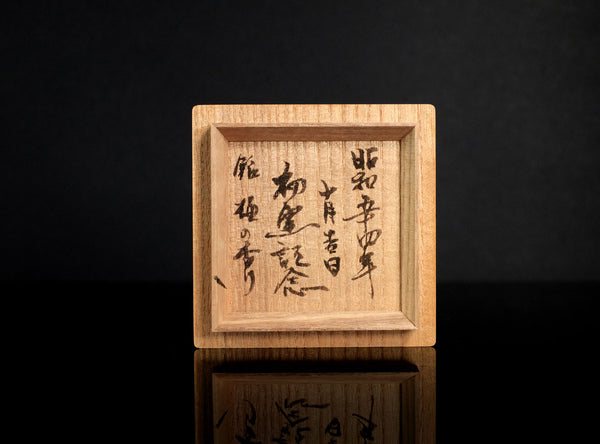 昭和五十四年
十月吉日
初窯記念
銘 梅の香り